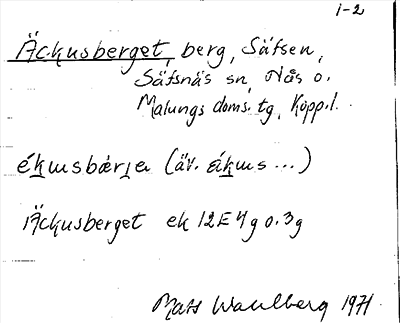 1-2
Äckusberget, berg, Säfsen,
Säfsnäs sn, Nås o.
Malungs doms. tg, Kopp. l.
ékusbärja (äv. ákus ...)
Äckusberget ek 12E 4g o. 3g
Mats Wahlberg 1971